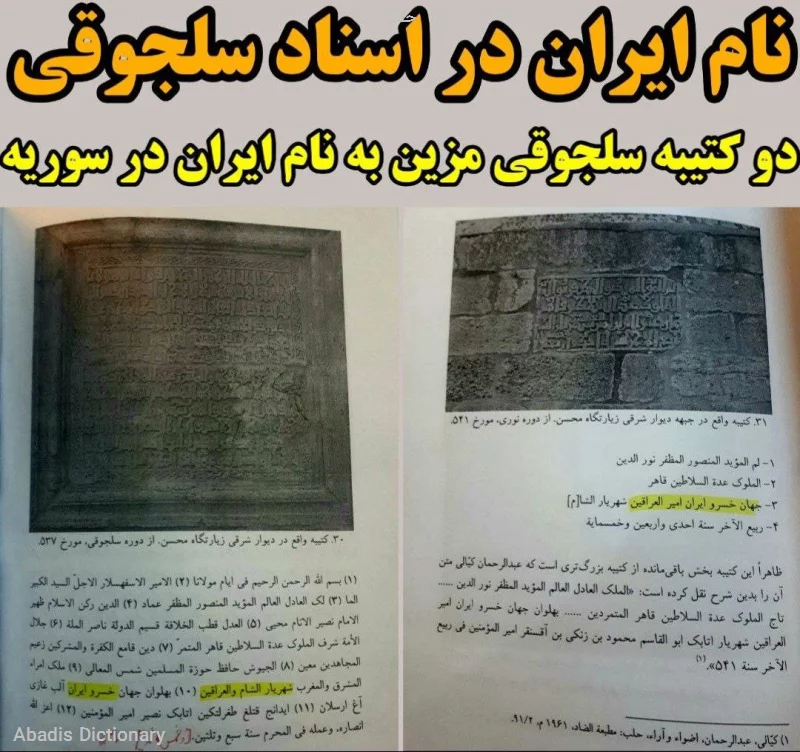 نام ایران در اسناد سلجوقی
دو کتیبه سلجوقی مزین به نام ایران در سوریه
۳۱. کتیبه واقع در جبهه دیوار شرقی زیارتگاه محسن. از دوره نوری، مورخ ۵۴۱.
۱- لم المؤید المنصور المظفر نور الدین
۲- الملوک عدة السلاطین قاهر
۳- جهان خسرو ایران امیر العراقین شهریار الشا[م]
۴- ربیع الآخر سنة احدی واربعین وخمسمایة
ظاهراً این کتیبه بخش باقی‌مانده از کتیبه بزرگ‌تری است که عبدالرحمان کیّالی متن
آن را بدین شرح نقل کرده است: «الملک العادل العالم المؤید المظفر نور الدین ......
تاج الملوک عدة السلاطین قاهر المتمردین ...... پهلوان جهان خسرو ایران امیر
العراقین شهریار اتابک ابو القاسم محمود بن زنکی بن آقسنقر امیر المؤمنین فی ربیع
الآخر سنة ۵۴۱».(۱)
۱) کیّالی، عبدالرحمان، اضواء وآراء، حلب: مطبعة الضاد، ۱۹۶۱ م، ۹۱/۲.
۳۰. کتیبه واقع در دیوار شرقی زیارتگاه محسن. از دوره سلجوقی، مورخ ۵۳۷.
(۱) بسم الله الرحمن الرحیم فی ایام مولانا (۲) الامیر الاسفهسلار الاجلّ السید الکبیر
الما (۳) لک العادل العالم المؤید المنصور المظفر عماد (۴) الدین رکن الاسلام ظهیر
الامام نصیر الانام محیی (۵) العدل قطب الخلافة قسیم الدولة ناصر الملة (۶) جلال
الأمة شرف الملوک عدة السلاطین قاهر المتمرّ (۷) دین قامع الکفرة والمشرکین زعیم
المجاهدین معین (۸) الجیوش حافظ حوزة المسلمین شمس المعالی (۹) ملک امراء
المشرق والمغرب شهریار الشام والعراقین (۱۰) پهلوان جهان خسرو ایران آلب غازی
آغ ارسلان (۱۱) ایدانج قتلغ طغرلتکین اتابک نصیر امیر المؤمنین (۱۲) اعز الله
انصاره، وعمله فی المحرم سنة سبع وثلثین.
Abadis Dictionary